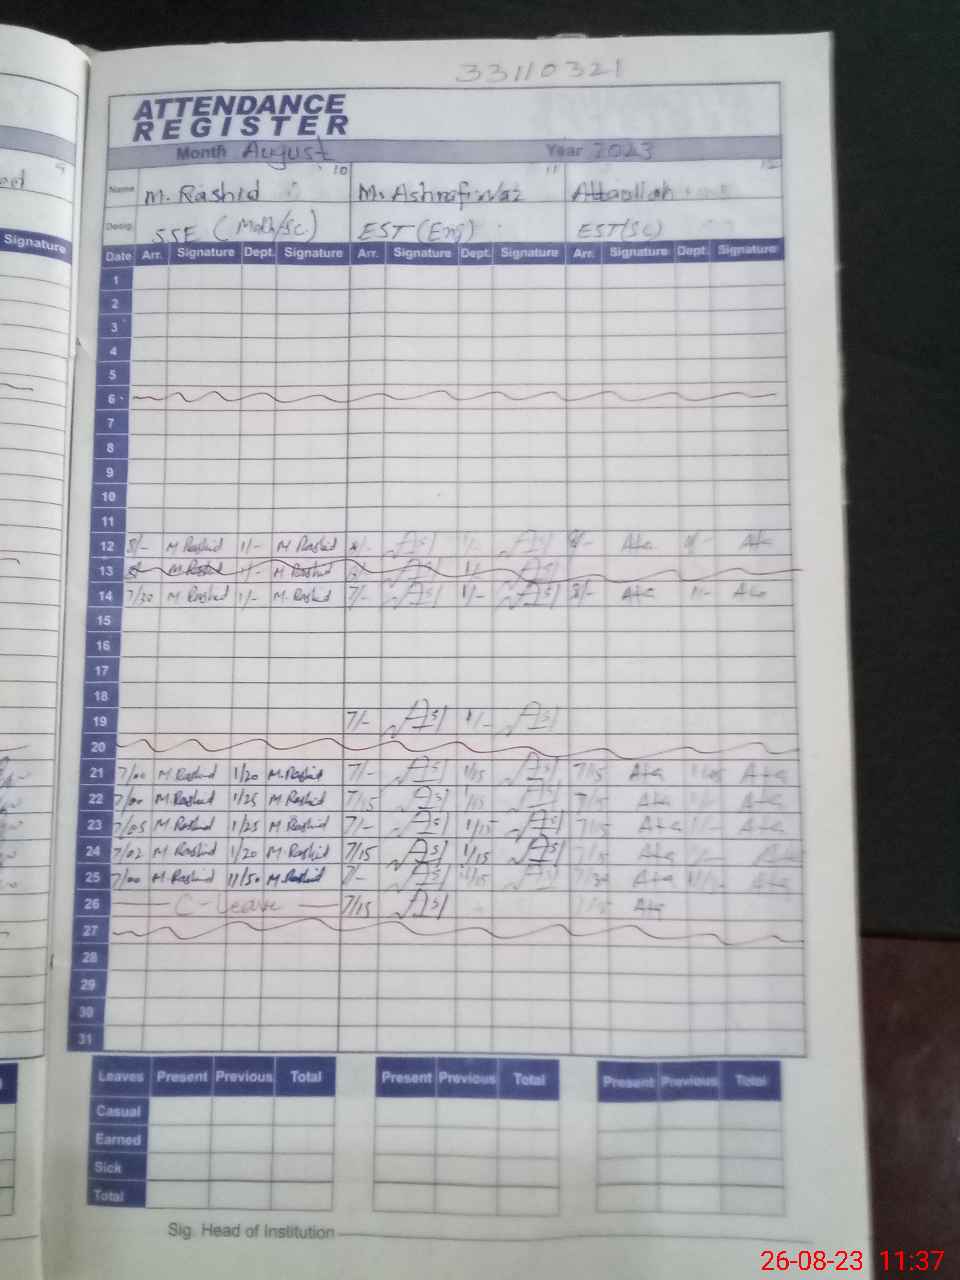 33110321
ATTENDANCE
REGISTER
Month August Year 2023
10 11 12
Name M. Rashid M. Ashraf Attaullah
Desig. SSE (Math/Sc.) EST (Eng) EST(SC)
Signature
Date Arr. Signature Dept. Signature Arr. Signature Dept. Signature Arr. Signature Dept. Signature
1
2
3
4
5
6
7
8
9
10
11
12 8/- M Rashid 1/- M Rashid 8/- 1/- 8/- Ata Ata
13 M Rashid 1/- M Rashid 1/-
14 7/30 M Rashid 1/- M. Rashid 7/- 1/- 8/- Ata 1/- Ata
15
16
17
18
19 7/- 1/-
20
21 7/00 M. Rashid 1/20 M. Rashid 7/- 1/15 7/15 Ata Ata
22 7/00 M. Rashid 1/25 M Rashid 7/15 1/15 7/15 Ata 1/- Ata
23 7/05 M Rashid 1/25 M Rashid 7/- 1/15 7/15 Ata 1/- Ata
24 7/02 M Rashid 1/20 M Rashid 7/15 1/15 7/15 Ata 1/- Ata
25 7/00 M Rashid 11/50 M. Rashid 7/- 7/30 Ata Ata
26 C-Leave 7/15 7/15 Ata
27
28
29
30
31
Leaves Present Previous Total Present Previous Total Present Previous Total
Casual
Earned
Sick
Total
Sig. Head of Institution
26-08-23 11:37